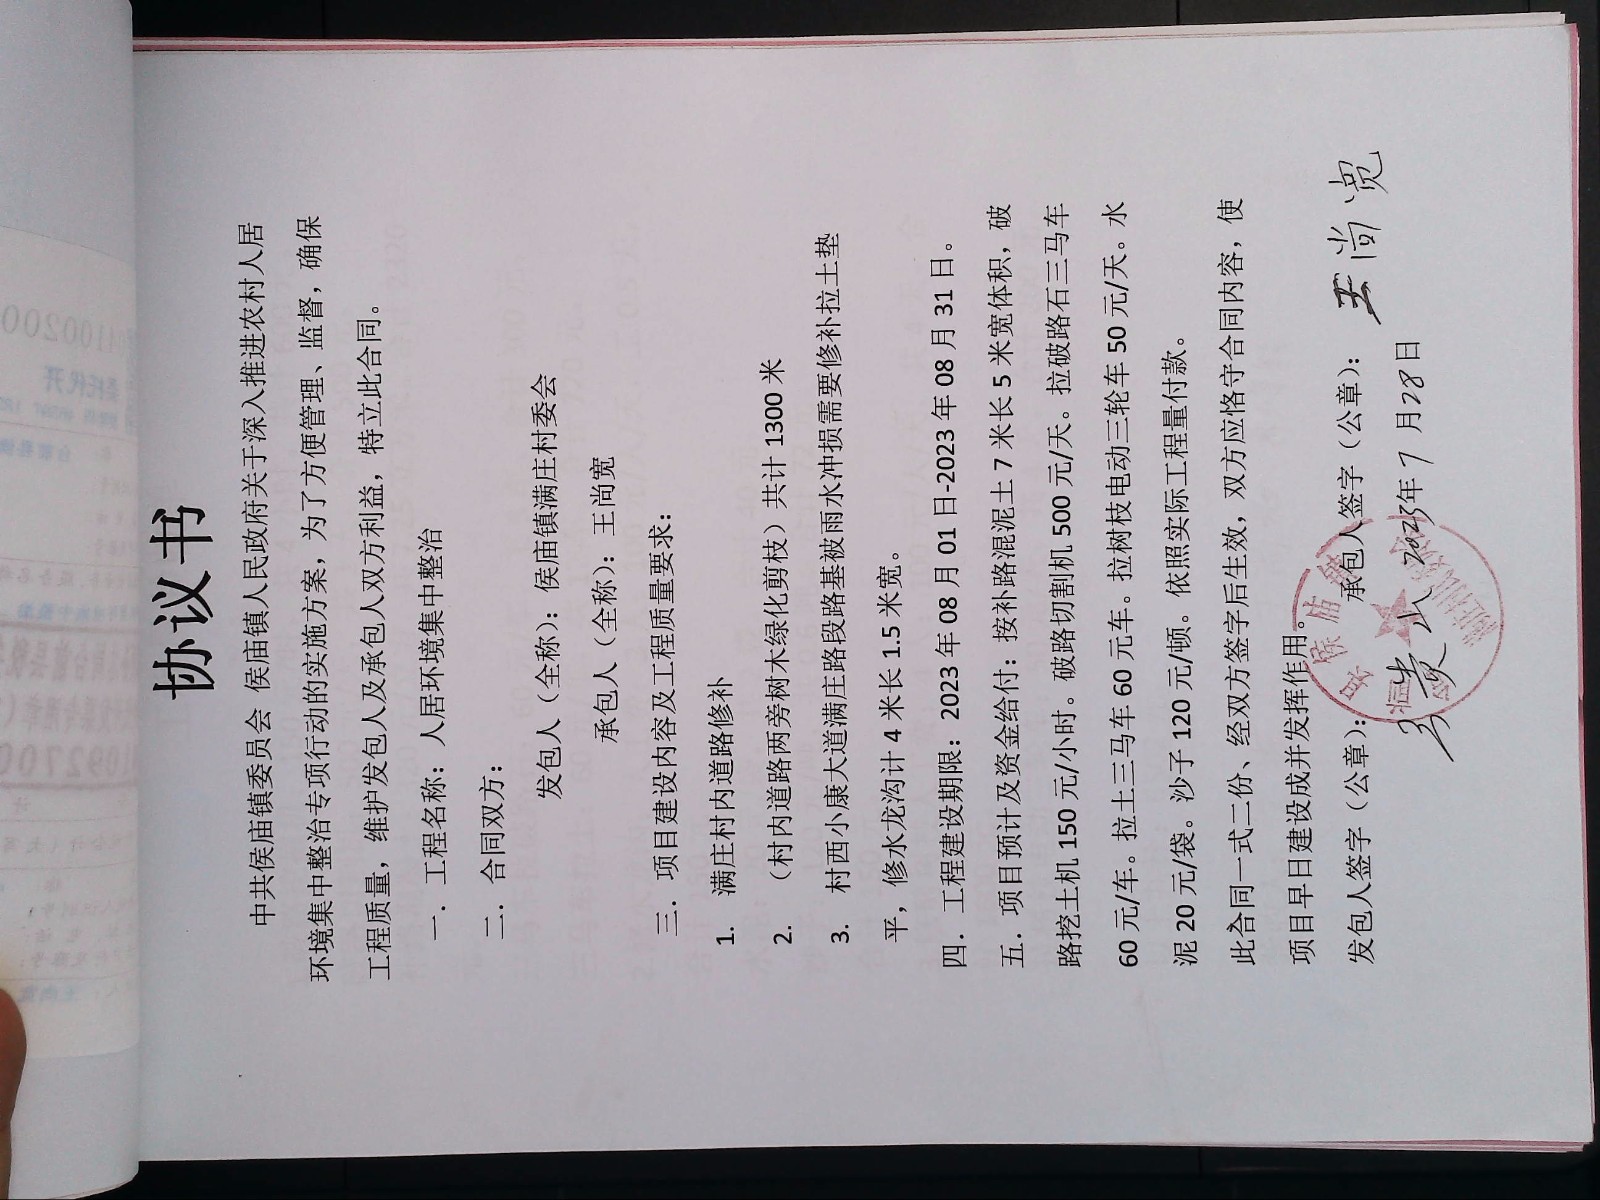 协议书
中共侯庙镇委员会 侯庙镇人民政府关于深入推进农村人居
环境集中整治专项行动的实施方案，为了方便管理、监督，确保
工程质量，维护发包人及承包人双方利益，特立此合同。
一．工程名称：人居环境集中整治
二．合同双方：
发包人（全称）：侯庙镇满庄村委会
承包人（全称）：王尚宽
三．项目建设内容及工程质量要求：
1. 满庄村内道路修补
2. （村内道路两旁树木绿化剪枝）共计 1300 米
3. 村西小康大道满庄路段路基被雨水冲损需要修补拉土垫
平，修水龙沟计 4 米长 1.5 米宽。
四．工程建设期限：2023 年 08 月 01 日-2023 年 08 月 31 日。
五．项目预计及资金给付：按补路混泥土 7 米长 5 米宽体积，破
路挖土机 150 元/小时。破路切割机 500 元/天。拉破路石三马车
60 元/车。拉土三马车 60 元车。拉树枝电动三轮车 50 元/天。水
泥 20 元/袋。沙子 120 元/顿。依照实际工程量付款。
此合同一式二份、经双方签字后生效，双方应恪守合同内容，使
项目早日建设成并发挥作用。
发包人签字（公章）： 承包人签字（公章）：王尚宽
2023年7月28日
侯庙镇